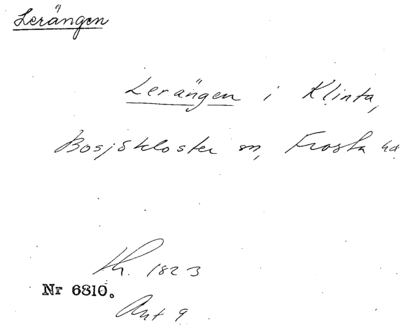 Lerängen
Lerängen i Klinta,
Bosjökloster sn, Frosta hd
Kh. 1823
Nr 6810.
Akt 9